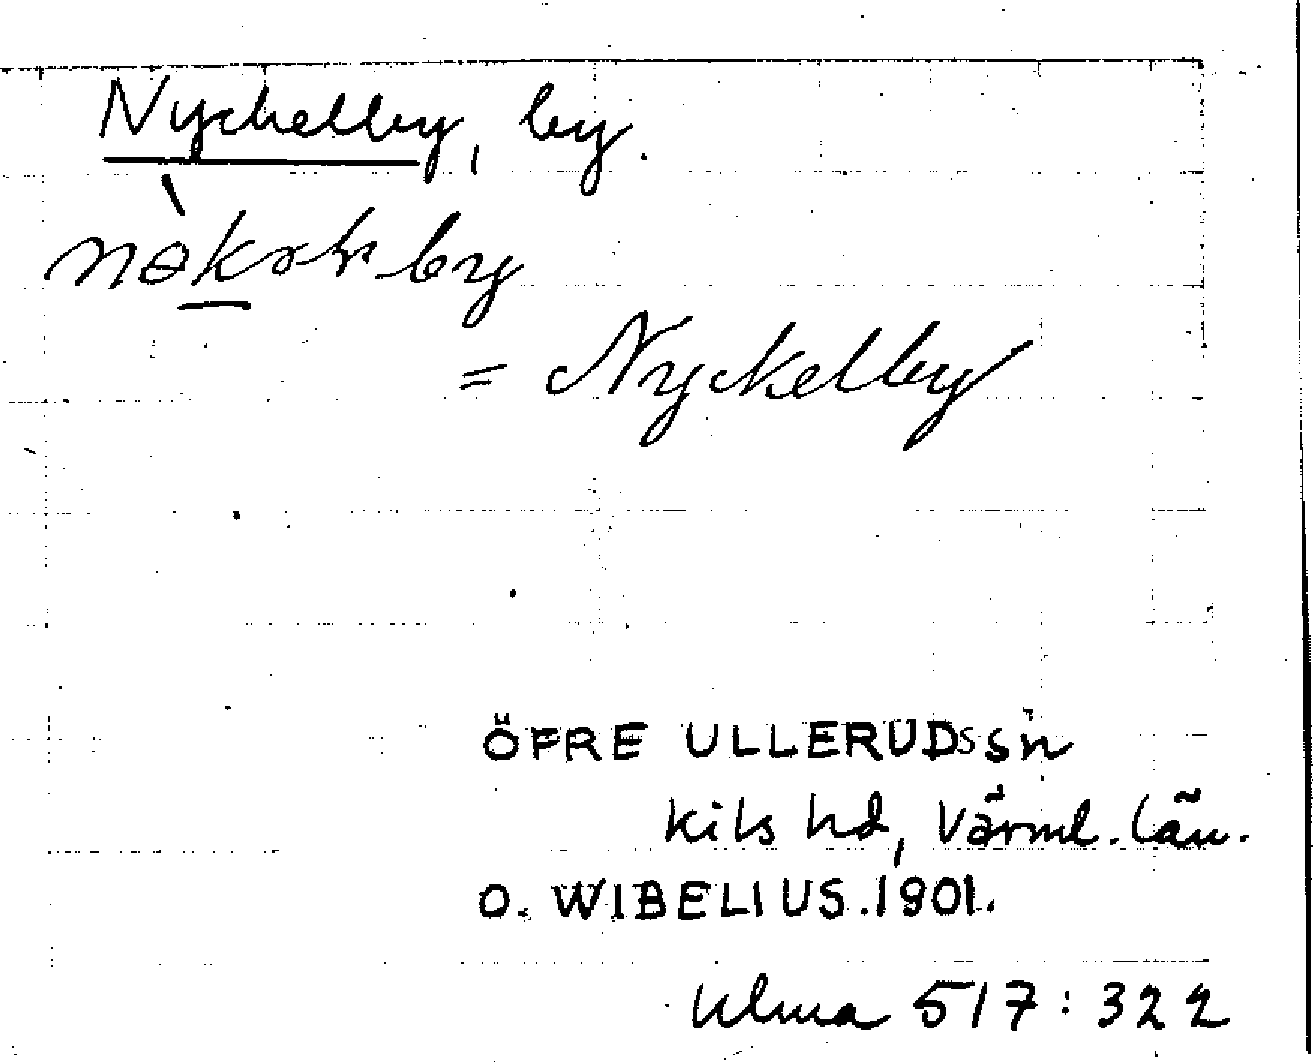 Nyckelby, by.
= Nyckelby
ÖFRE ULLERUDS sn
Kils hd, Värml. län.
O. WIBELIUS. 1901.
Ulma 517:322